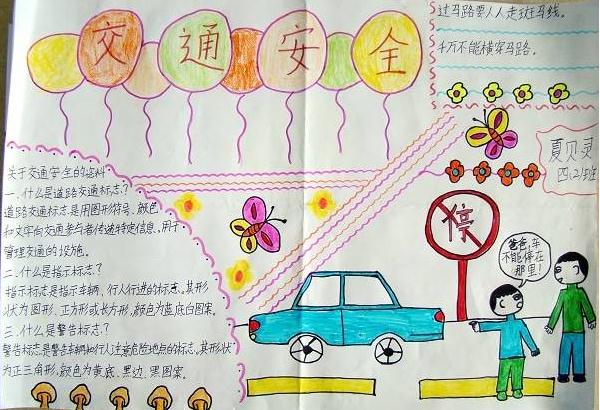 交通安全
过马路要人人走斑马线。
千万不能横穿马路。
夏贝灵
四(2)班
关于交通安全的资料
一、什么是道路交通标志？
道路交通标志是用图形符号、颜色
和文字向交通参与者传递特定信息，用于
管理交通的设施。
二、什么是指示标志？
指示标志是指示车辆、行人行进的标志。其形
状为圆形、正方形或长方形，颜色为蓝底白图案。
三、什么是警告标志？
警告标志是警告车辆和行人注意危险地点的标志。其形状
为正三角形，颜色为黄底、黑边、黑图案。
停
爸爸，车
不能停在
那里！